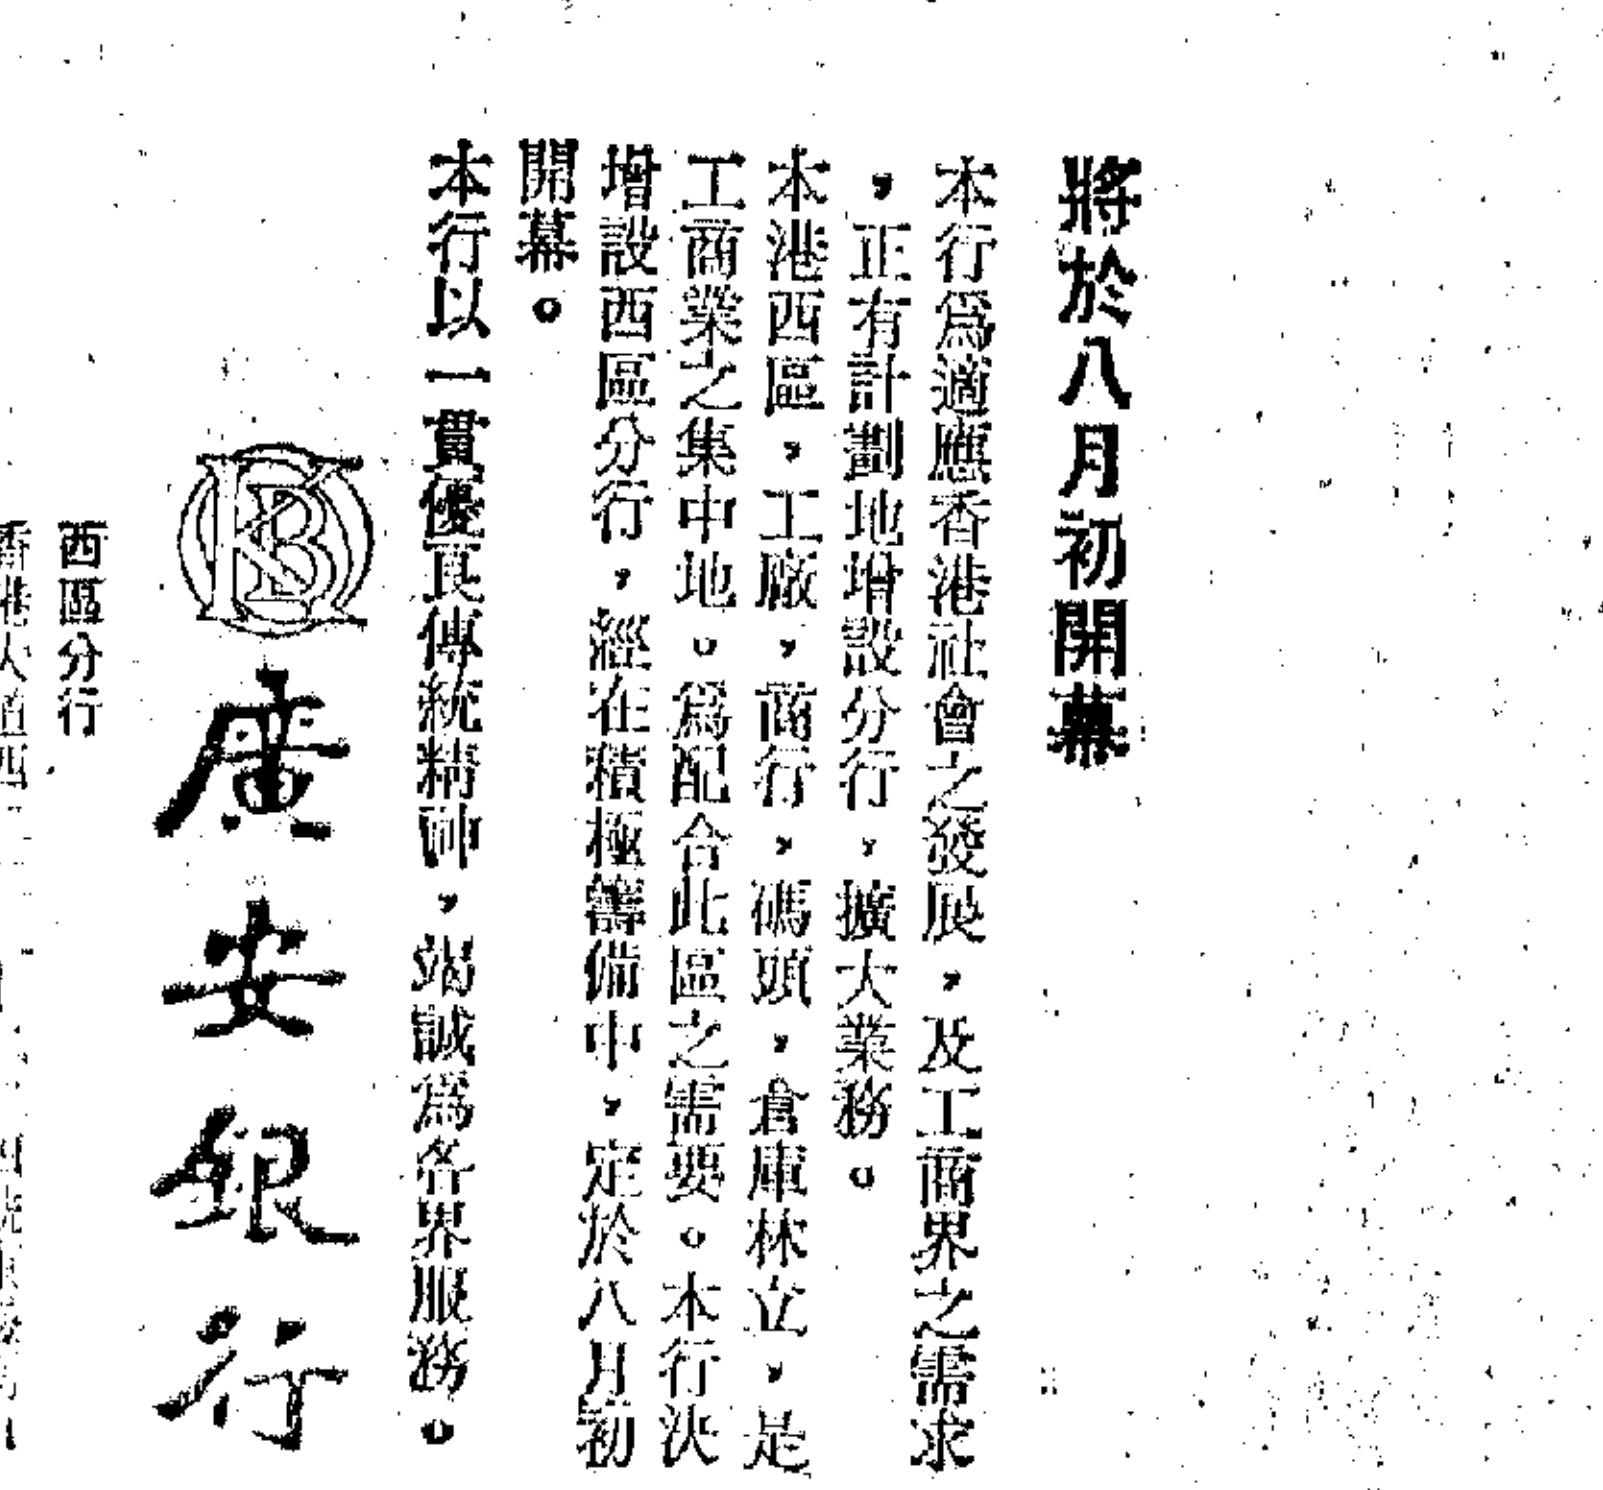 將於八月初開幕
本行爲適應香港社會之發展，及工商界之需求
，正有計劃地增設分行，擴大業務。
本港西區，工廠，商行，碼頭，倉庫林立，是
工商業之集中地。爲配合此區之需要。本行決
增設西區分行，經在積極籌備中，定於八月初
開幕。
本行以一貫優良傳統精神，竭誠爲各界服務。
廣安銀行
西區分行
香港大道西